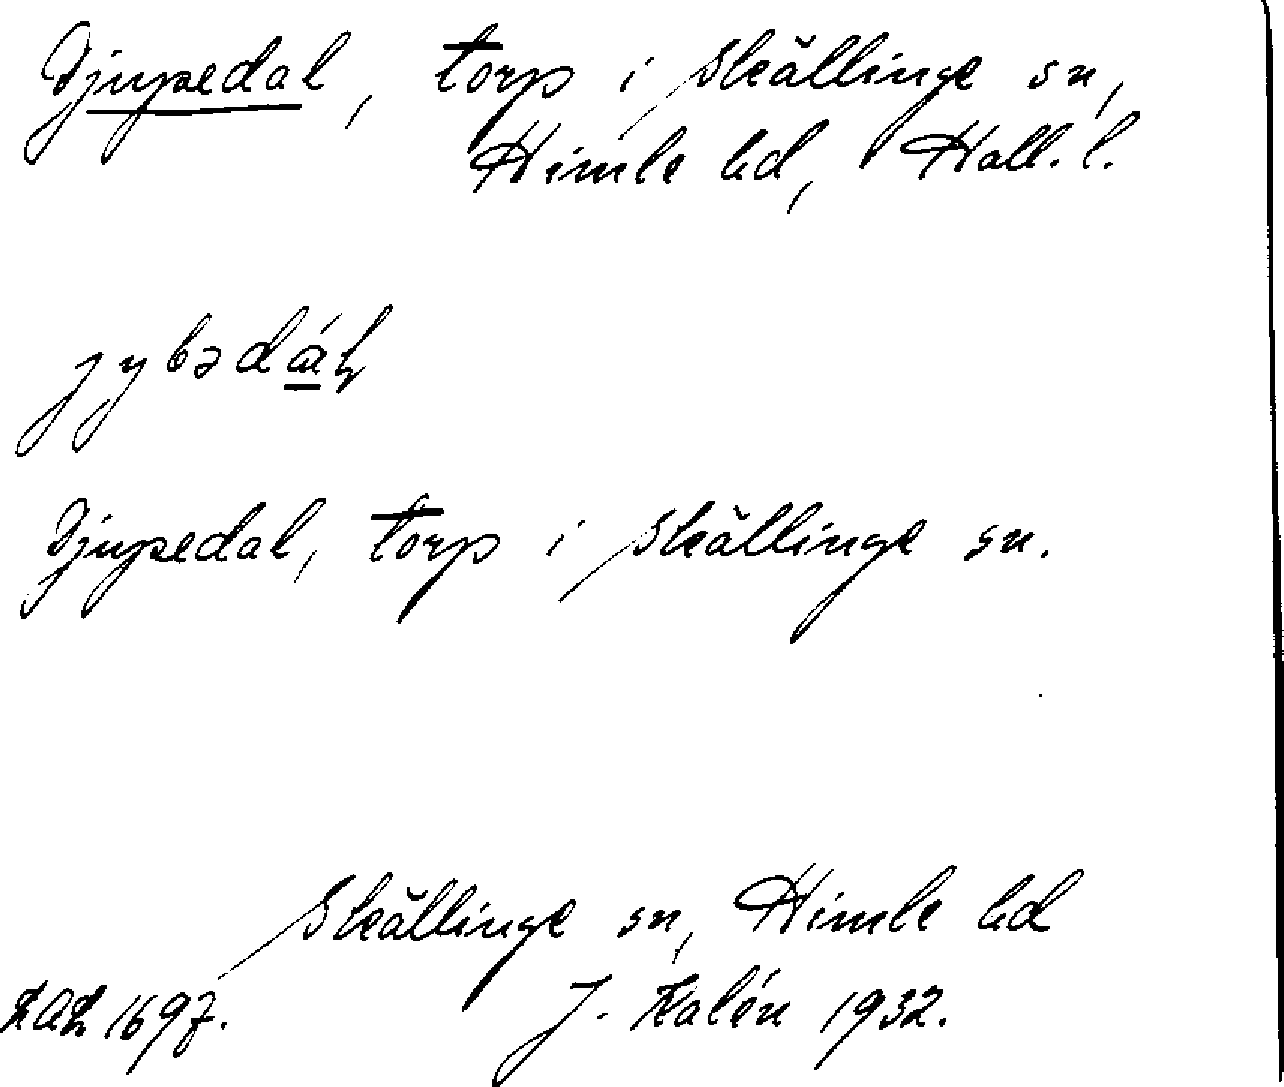 Djupedal, torp i Skällinge sn,
Himle hd, Hall. l.
jybədáɫ
Djupedal, torp i Skällinge sn.
Skällinge sn, Himle hd
1697. J. Kalén 1932.